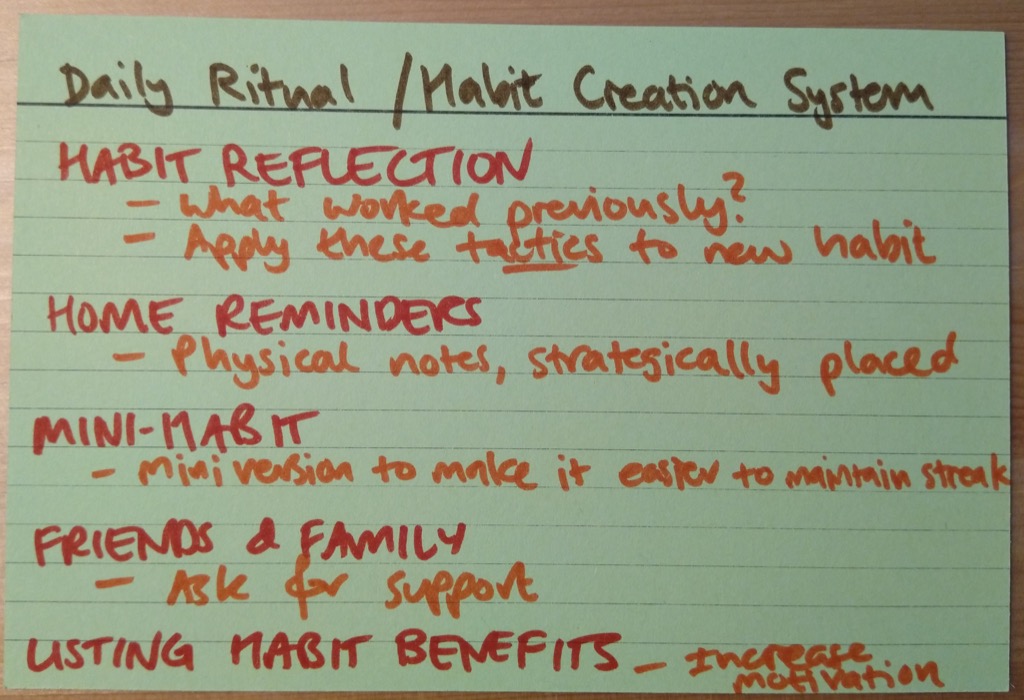 Daily Ritual / Habit Creation System
HABIT REFLECTION
- What worked previously?
- Apply these tactics to new habit
HOME REMINDERS
- Physical notes, strategically placed
MINI-HABIT
- Mini version to make it easier to maintain streak
FRIENDS & FAMILY
- Ask for support
LISTING HABIT BENEFITS - Increase
motivation